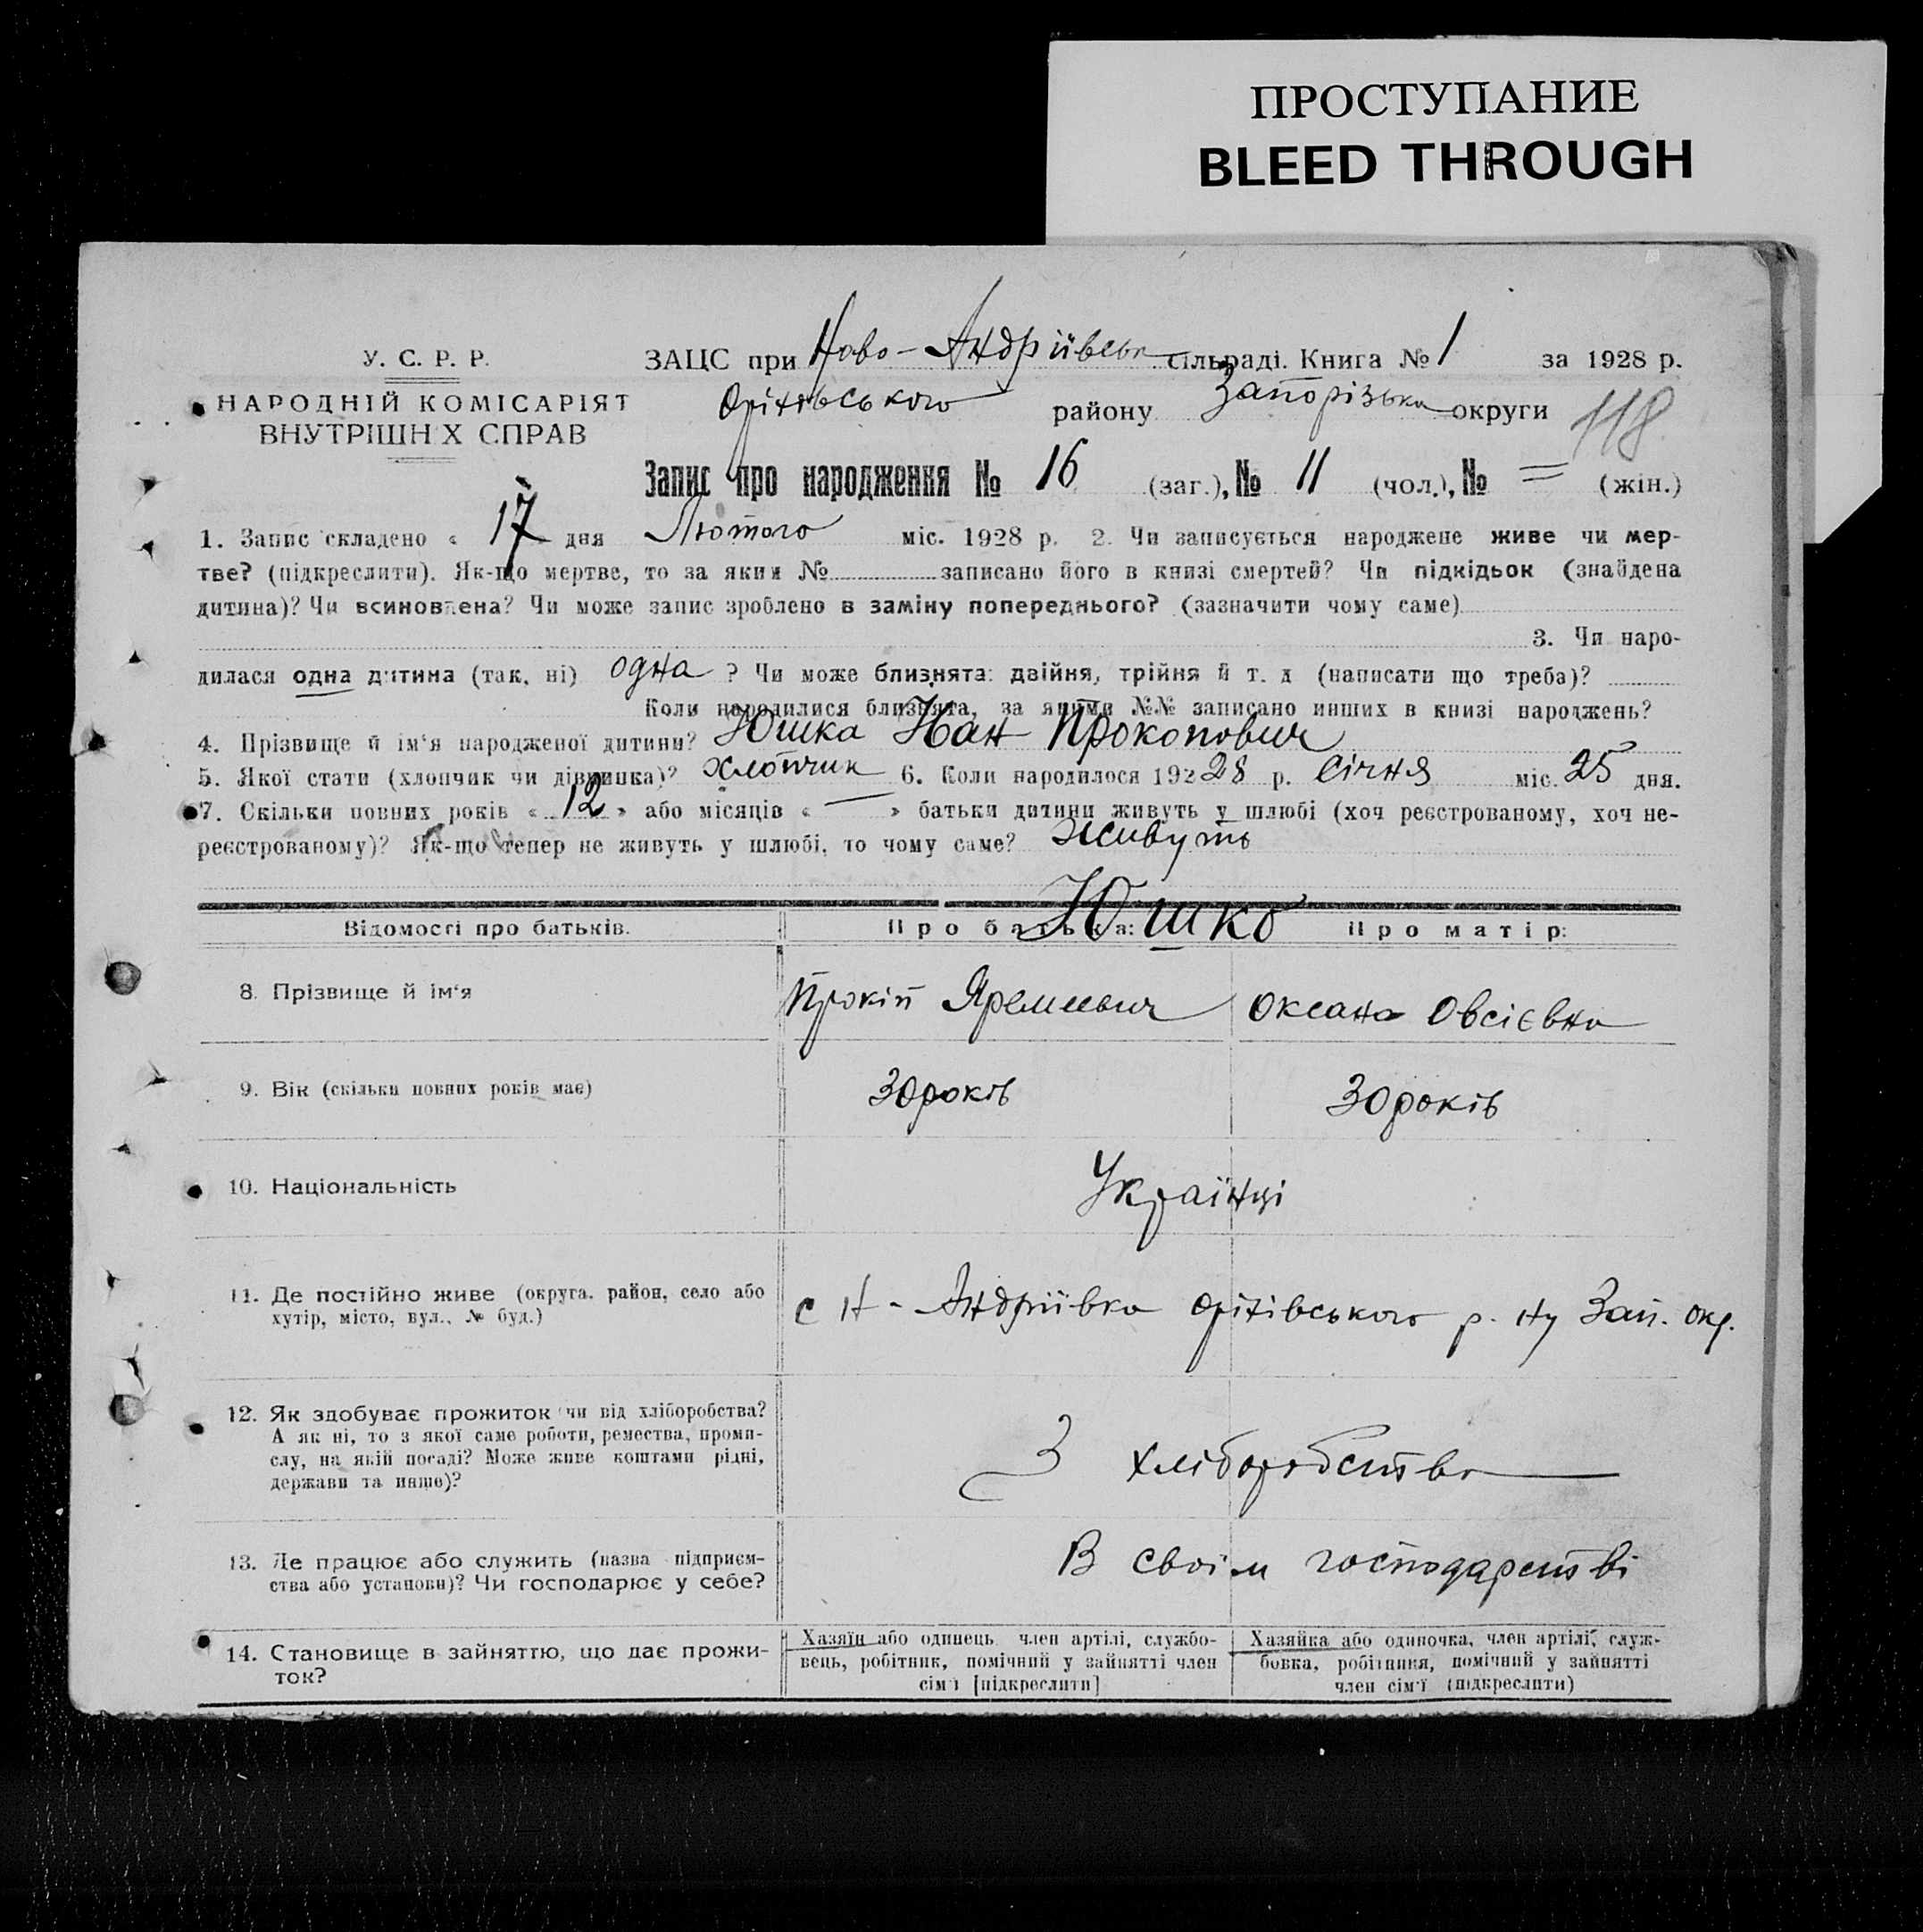 ПРОСТУПАНИЕ
BLEED THROUGH
У. С. Р. Р.
НАРОДНІЙ КОМІСАРІЯТ
ВНУТРІШН Х СПРАВ
ЗАЦС при Ново-Андріївськ сільраді. Книга № 1 за 1928 р.
Оріхівського району Запорізька округи
118
Запис про народження № 16 (заг.), № 11 (чол.), № = (жін.)
1. Запис складено « 17 дня Лютого міс. 1928 р. 2. Чи записується народжене живе чи мер-
тве? (підкреслити). Як-що мертве, то за яким № записано його в книзі смертей? Чи підкідьок (знайдена
дитина)? Чи всиновлена? Чи може запис зроблено в заміну попереднього? (зазначити чому саме)
3. Чи наро-
дилася одна дитина (так, ні) одна ? Чи може близнята: двійня, трійня й т. д (написати що треба)?
Коли народилися близнята, за якими №№ записано инших в книзі народжень?
4. Прізвище й ім'я народженої дитини? Юшка Іван Прокопович
5. Якої стати (хлопчик чи дівчинка)? хлопчик 6. Коли народилося 192 28 р. Січня міс. 25 дня.
7. Скільки повних років « 12 » або місяців « — » батьки дитини живуть у шлюбі (хоч реєстрованому, хоч не-
реєстрованому)? Як-що тепер не живуть у шлюбі, то чому саме? живуть
Юшко
Відомості про батьків. Про батька: Про матір:
8. Прізвище й ім'я Прокіп Яремиевич Оксана Овсієвна
9. Вік (скільки повних років має) 30 років 30 років
10. Національність Українці
11. Де постійно живе (округа. район, село або
хутір, місто, вул., № буд.)
с Н-Андріївка Оріхівського р. ну Зап. окр.
12. Як здобуває прожиток чи від хліборобства?
А як ні, то з якої саме роботи, ремества, проми-
слу, на якій посаді? Може живе коштами рідні,
держави та инше)?
З хліборобства
13. Де працює або служить (назва підприєм-
ства або установи)? Чи господарює у себе?
В своїм господарстві
14. Становище в зайняттю, що дає прожи-
ток?
Хазяїн або одинець член артілі, службо-
вець, робітник, помічний у зайнятті член
сім'ї [підкреслити]
Хазяйка або одиночка, член артілі, служ-
бовка, робітниця, помічний у зайнятті
член сім'ї (підкреслити)